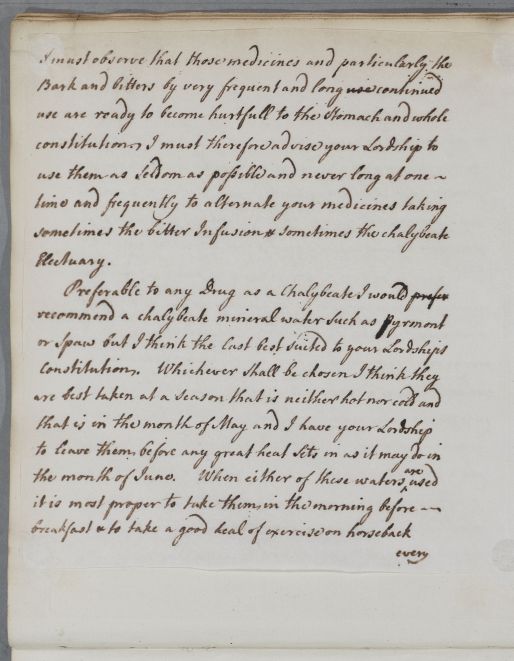 I must observe that those medicines and particularly the
Bark and bitters by very frequent and long use continued
use are ready to become hurtfull to the Stomach and whole
constitution, I must therefore advise your Lordship to
use them as Seldom as possible and never long at one
time and frequently to alternate your medicines taking
sometimes the bitter Infusion & sometimes the chalybeate
Electuary.
Preferable to any Drug as a Chalybeate I would prefer
recommend a chalybeate mineral water such as Pyrmont
or Spaw but I think the last best suited to your Lordships
Constitution. Whichever shall be chosen I think they
are best taken at a season that is neither hot nor cold and
that is in the month of May and I have your Lordship
to leave them before any great heat Sets in as it may do in
the month of June. When either of these waters are used
it is most proper to take them in the morning before
breakfast & to take a good deal of exercise on horseback
every